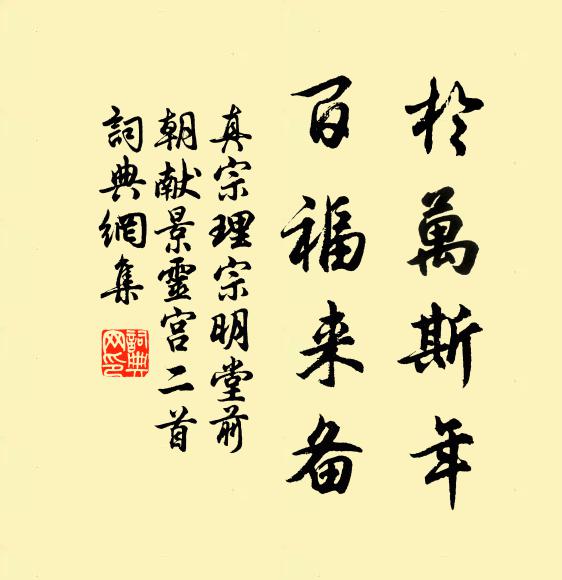 於萬斯年
百福来备
真宗理宗明堂前
朝献景靈宫二首
詞典網集
詞典
网印